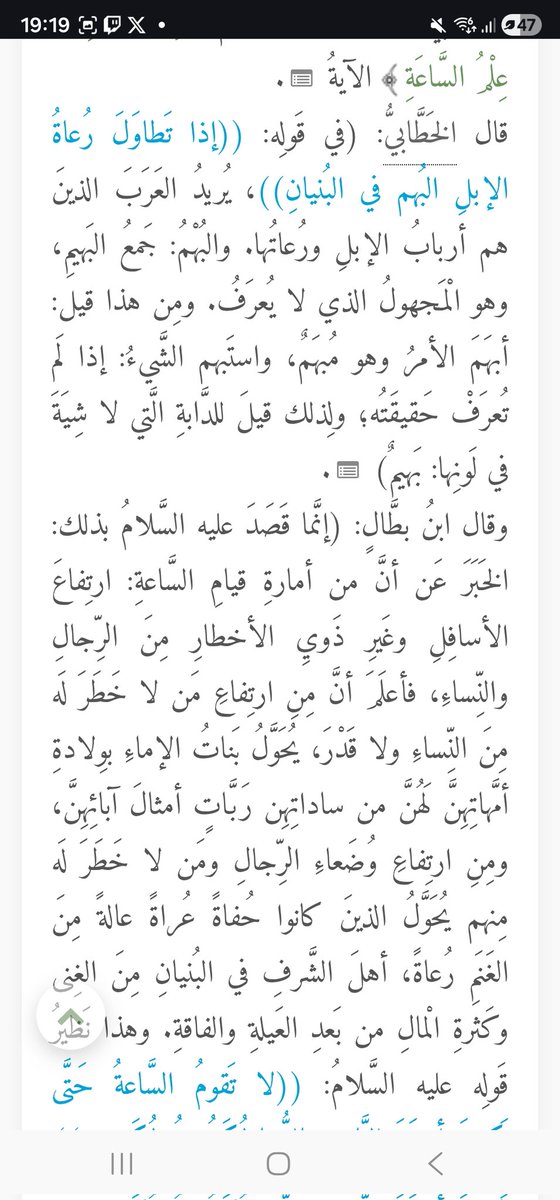 19:19
47
عِلْمُ السَّاعَةِ ﴾ الآيةُ .
قال الخَطَّابيُّ: (في قَولِه: ((إذا تَطاوَلَ رُعاةُ
الإبلِ البُهم في البُنيانِ))، يُريدُ العَرَبَ الذينَ
هم أربابُ الإبلِ ورُعاتُها. والبُهْمُ: جَمعُ البَهيمِ،
وهو الْمَجهولُ الذي لا يُعرَفُ. ومِن هذا قيل:
أبهَمَ الأمرُ وهو مُبهَمٌ، واستَبهم الشَّيءُ: إذا لَم
تُعرَفْ حَقيقَتُه؛ ولِذلك قيلَ للدَّابةِ الَّتي لا شِيَةَ
في لَونِها: بَهيمٌ) .
وقال ابنُ بطَّالٍ: (إنَّما قَصَدَ عليه السَّلامُ بذلك:
الخَبَرَ عَن أنَّ من أمارةِ قيامِ السَّاعةِ: ارتِفاعَ
الأسافِلِ وغَيرِ ذَويِ الأخطارِ مِنَ الرِّجالِ
والنِّساءِ، فأعلَمَ أنَّ مِنِ ارتِفاعِ مَن لا خَطَرَ لَه
مِنَ النِّساءِ ولا قَدْرَ، يُحَوَّلُ بَناتُ الإماءِ بوِلادةِ
أمَّهاتِهِنَّ لَهُنَّ من ساداتِهِن رَبَّاتٍ أمثالَ آبائِهِنَّ،
ومِنِ ارتِفاعِ وُضَعاءِ الرِّجالِ ومَن لا خَطَرَ لَه
مِنهم يُحَوَّلُ الذينَ كانوا حُفاةً عُراةً عالةً مِنَ
الغَنَمِ رُعاةً، أهلَ الشَّرفِ في البُنيانِ مِنَ الغِنى
وكَثرةِ الْمالِ من بَعدِ العَيلةِ والفاقةِ. وهذا نَظيرُ
قَولِه عليه السَّلامُ: ((لا تَقومُ السَّاعةُ حَتَّى